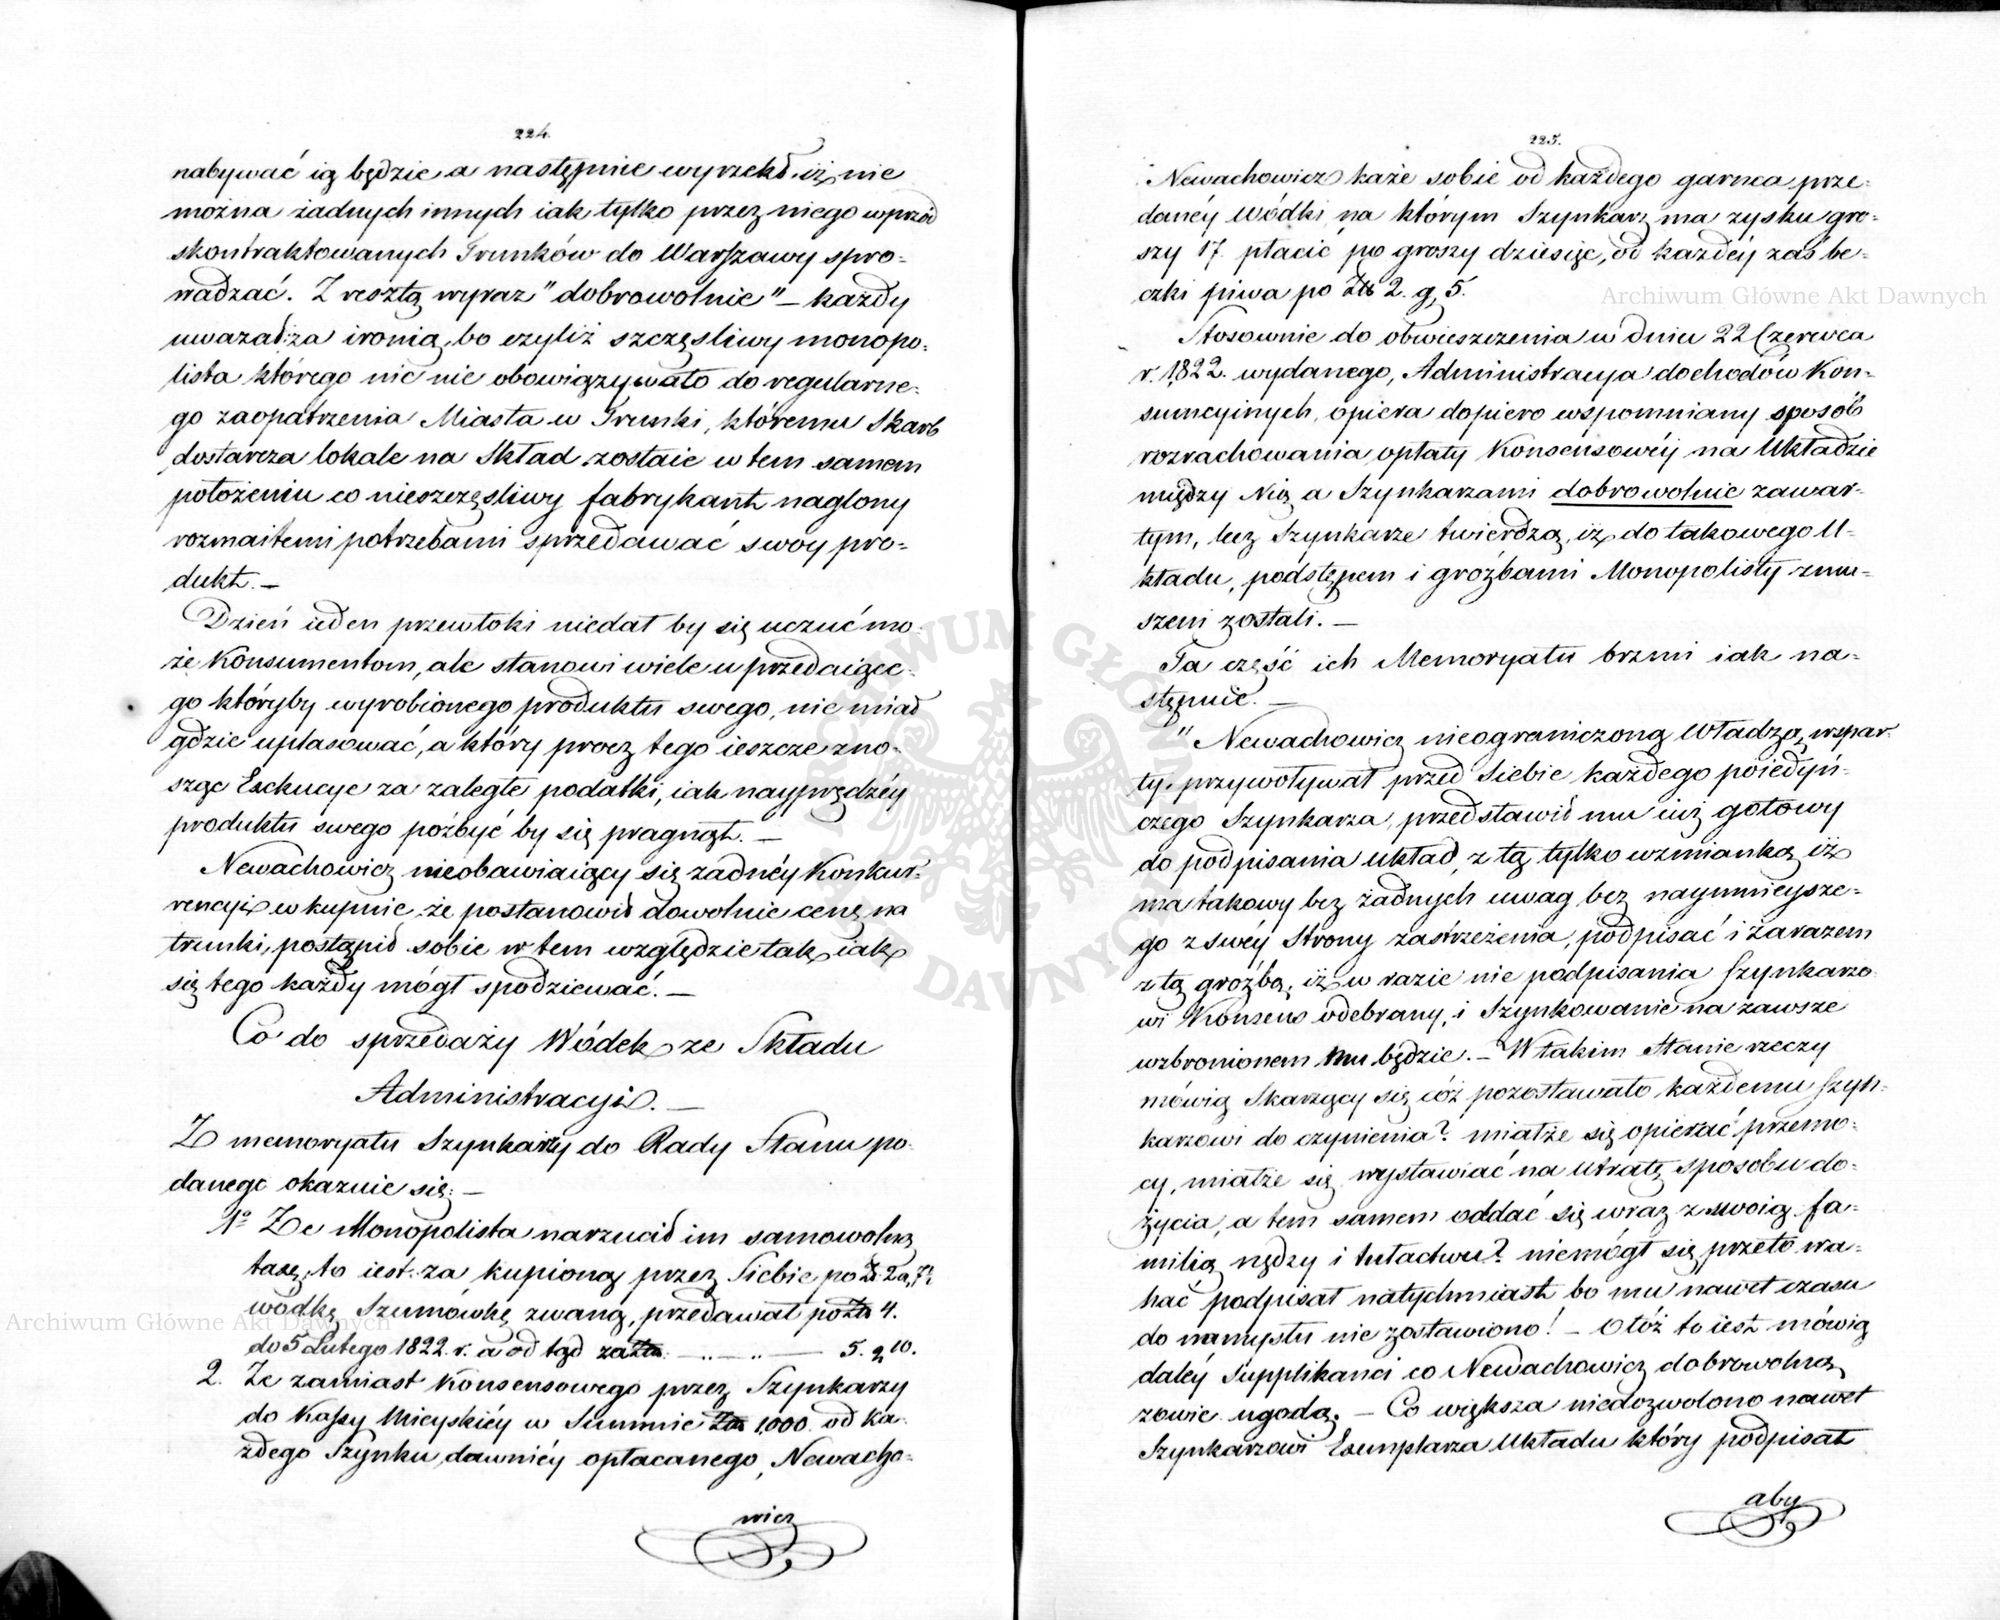 224.
nabywać ią będzie a następnie wyrzekł iż nie
można żadnych innych iak tylko przez niego wprzód
skontraktowanych Trunków do Warszawy spro-
wadzać. Z resztą wyraz "dobrowolnie" – każdy
uważał za ironią, bo czyliż szczęsliwy monopo-
lista którego nic nie obowiązywało do regularne-
go zaopatrzenia Miasta w Trunki, któremu Skarb
dostarcza lokale na Skład zostaie w tem samem
położeniu co nieszczęsliwy fabrykant naglony
rozmaitemi potrzebami sprzedawać swoy pro-
dukt. –
Dzień ieden przewłoki niedał by się uczuć mo-
że Konsumentom, ale stanowi wiele u przedaiące-
go któryby wyrobionego produktu swego, nie miał
gdzie uplasować, a który procz tego ieszcze zno-
sząc Exekucye za zaległe podatki, iak nayprędzéy
produktu swego pozbyć by się pragnął. –
Newachowicz nieobawiaiący się żadnéy Konkur-
rencyi w kupnie, że postanowił dowolnie cenę na
trunki, postąpił sobie w tem względzie tak, iak
się tego każdy mógł spodziewać. –
Co do sprzedaży Wódek ze Składu
Administracyi. –
Z memoryału Szynkarzy do Rady Stanu po-
danego okazuie się: –
1º Że Monopolista narzucił im samowolną
taxę, to iest: za kupioną przez Siebie po Zł. 2 g. 7½
wódkę Szumówkę zwaną, przedawał po Złł 4.
do 5 Lutego 1822 r. a od tąd za Złł. –..–..– 5. g 10.
2. Że zamiast Konsensowego przez Szynkarzy
do Kassy Mieyskiéy w Summie Złł 1,000 od ka-
żdego Szynku, dawniéy opłacanego, Newacho-
wicz
225.
Newachowicz każe sobie od każdego garnca prze-
danéy Wódki, na którym Szynkarz ma zysku gro-
szy 17. płacić po groszy dziesięć, od każdéy zaś be-
czki piwa po Złł 2. g, 5.
Stosownie do obwieszczenia w dniu 22 Czerwca
r. 1822. wydanego, Administracya dochodów Kon-
sumcyinych, opiera dopiero wspomniany sposób
rozrachowania opłaty Konsensowéy na Układzie
między Nią a Szynkarzami dobrowolnie zawar-
tym, lecz Szynkarze twierdzą, iż do takowego U-
kładu, podstępem i groźbami Monopolisty zmu-
szeni zostali. –
Ta część ich Memoryału brzmi iak na-
stępuie. –
"Newachowicz nieograniczoną Władzą wspar-
ty, przywoływał przed Siebie każdego poiedyń-
czego Szynkarza, przedstawił mu iuż gotowy
do podpisania układ, z tą tylko wzmianką iż
ma takowy bez żadnych uwag bez naymnieysze-
go z swéy Strony zastrzeżenia, podpisać i zarazem
z tą groźbą, iż w razie nie podpisania Szynkarzo-
wi Konsens odebrany, i Szynkowanie na zawsze
wzbronionem mu będzie. – W takim Stanie rzeczy
mówią Skarzący się cóż pozostawało każdemu Szyn-
karzowi do czynienia? miałże się opierać przemo-
cy, miałże się wystawiać na utratę sposobu do-
życia, a tem samem oddać się wraz z swoią fa-
milią nędzy i tułactwu? niemógł się przeto wa-
hać podpisał natychmiast bo mu nawet czasu
do namysłu nie zostawiono! – Otóż to iest mówią
daléy Supplikanci co Newachowicz dobrowolną
zowie ugodą. – Co większa niedozwolono nawet
Szynkarzowi Exemplarza Układu który podpisał
aby
Archiwum Główne Akt Dawnych
Archiwum Główne Akt Dawnych
ARCHIWUM GŁÓWNE AKT DAWNYCH